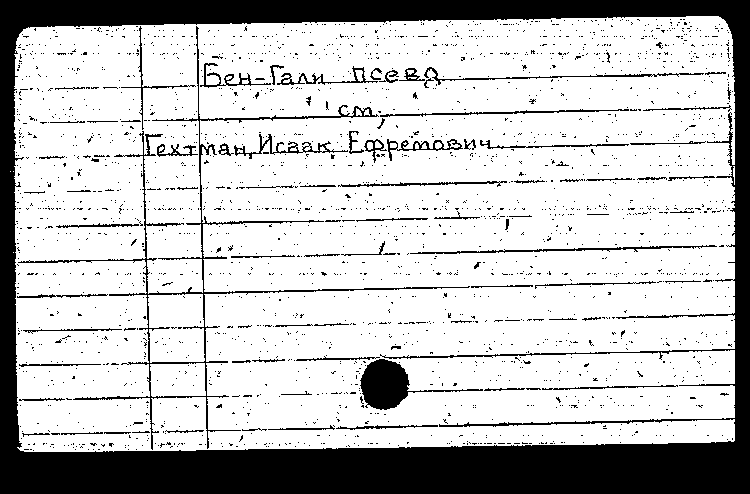 Бен-Гали псевд
см.
Гехтман, Исаак Ефремович